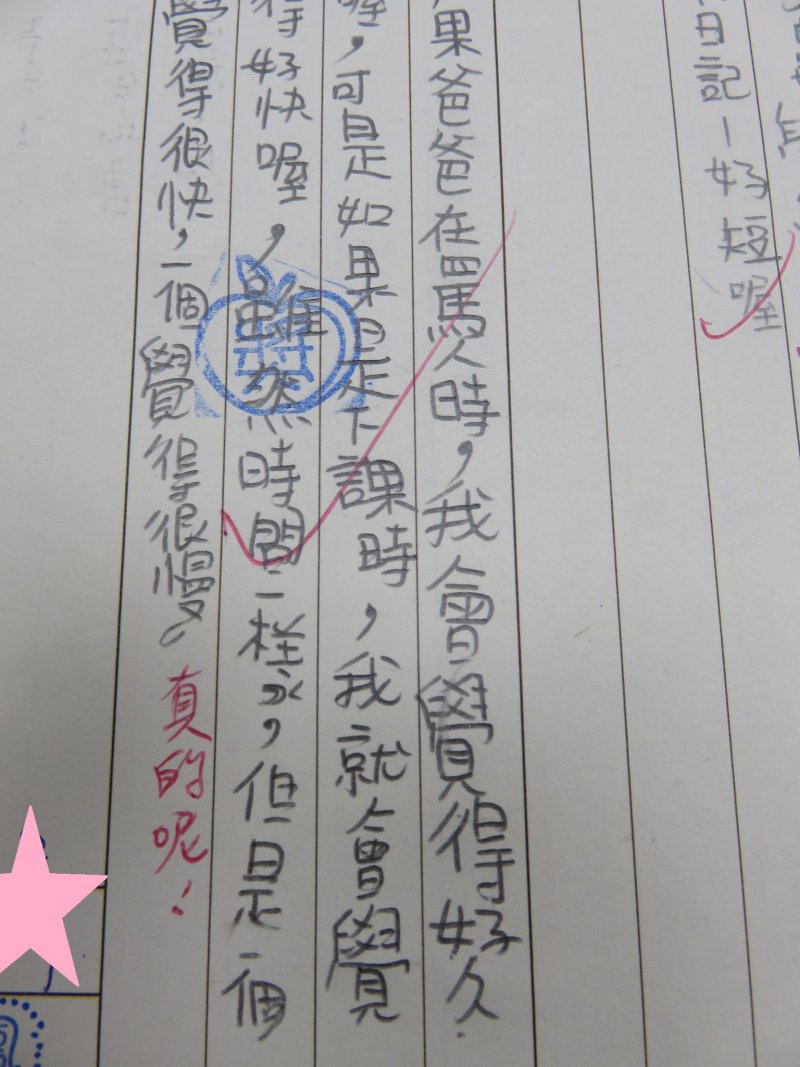 日記一好短喔
果爸爸在罵人時，我會覺得好久
喔，可是如果是下課時，我就會覺
得好快喔，雖然時間一樣，但是一個
覺得很快，一個覺得很慢。真的呢！